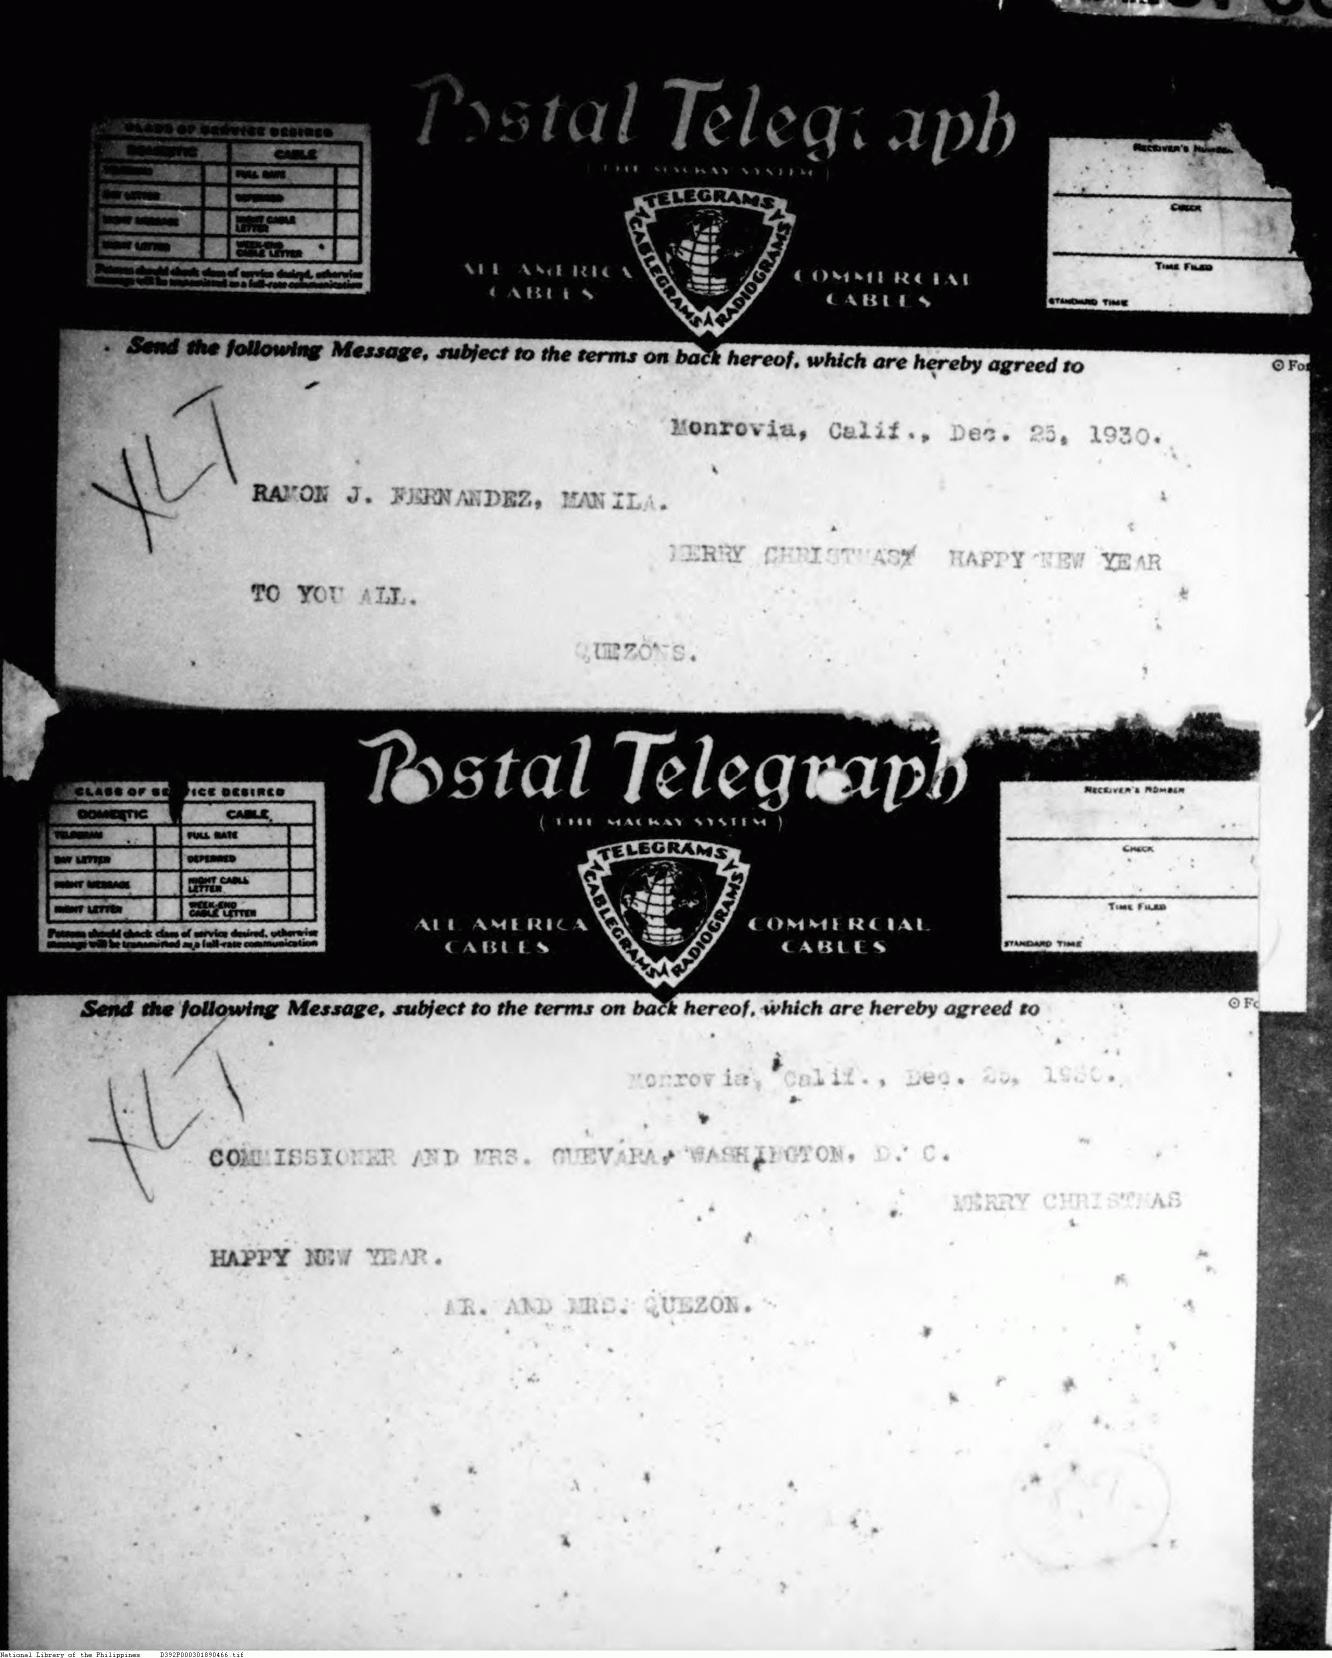 Postal Telegraph
(THE MACKAY SYSTEM)
CLASS OF SERVICE DESIRED
DOMESTIC CABLE
TELEGRAM FULL RATE
DAY LETTER DEFERRED
NIGHT MESSAGE NIGHT CABLE LETTER
NIGHT LETTER WEEK-END CABLE LETTER
Patrons should check class of service desired, otherwise
message will be transmitted as a full-rate communication
TELEGRAMS
CABLEGRAMS
RADIOGRAMS
ALL AMERICA
CABLES
COMMERCIAL
CABLES
RECEIVER'S NUMBER
CHECK
TIME FILED
STANDARD TIME
Send the following Message, subject to the terms on back hereof, which are hereby agreed to
XLT
Monrovia, Calif., Dec. 25, 1930.
RAMON J. FERNANDEZ, MANILA.
MERRY CHRISTMAS HAPPY NEW YEAR
TO YOU ALL.
QUEZONS.
Postal Telegraph
(THE MACKAY SYSTEM)
CLASS OF SERVICE DESIRED
DOMESTIC CABLE
TELEGRAM FULL RATE
DAY LETTER DEFERRED
NIGHT MESSAGE NIGHT CABLE LETTER
NIGHT LETTER WEEK-END CABLE LETTER
Patrons should check class of service desired, otherwise
message will be transmitted as a full-rate communication
TELEGRAMS
CABLEGRAMS
RADIOGRAMS
ALL AMERICA
CABLES
COMMERCIAL
CABLES
RECEIVER'S NUMBER
CHECK
TIME FILED
STANDARD TIME
Send the following Message, subject to the terms on back hereof, which are hereby agreed to
XLT
Monrovia, Calif., Dec. 25, 1930.
COMMISSIONER AND MRS. GUEVARA, WASHINGTON, D. C.
MERRY CHRISTMAS
HAPPY NEW YEAR.
MR. AND MRS. QUEZON.
National Library of the Philippines D392P000301890466.tif